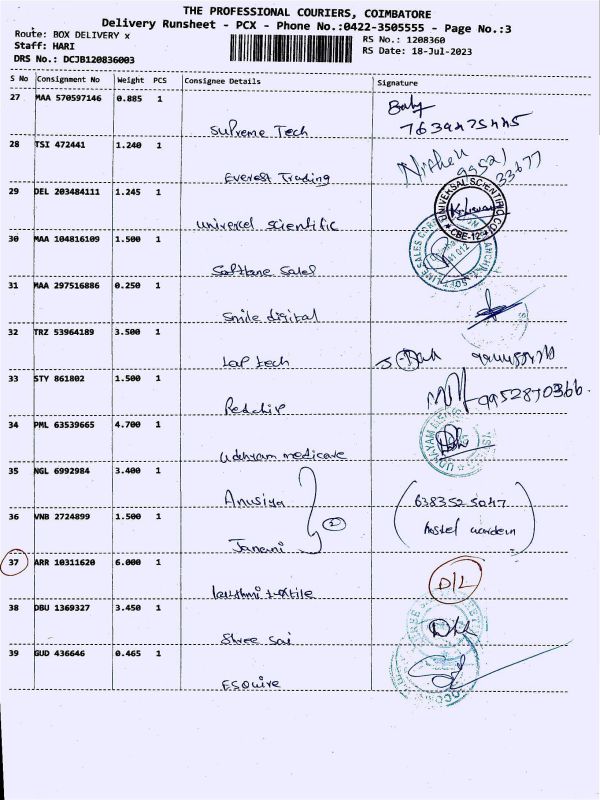 THE PROFESSIONAL COURIERS, COIMBATORE
Delivery Runsheet - PCX - Phone No.:0422-3505555 - Page No.:3
Route: BOX DELIVERY x
Staff: HARI
DRS No.: DCJB120836003
RS No.: 1208360
RS Date: 18-Jul-2023
S No Consignment No Weight PCS Consignee Details Signature
27 MAA 570597146 0.885 1
Supreme Tech
28 TSI 472441 1.240 1
Everest Trading Nithen 99521 33677
29 DEL 203484111 1.245 1
univercel scientific UNIVERSAL SCIENTIFIC CO CBE-12
30 MAA 104816109 1.500 1
Softlane Sales
31 MAA 297516886 0.250 1
Smile digital
32 TRZ 53964189 3.500 1
tap tech
33 STY 861802 1.500 1
Redchip 9952870366.
34 PML 63539665 4.700 1
udhyam medicare
35 NGL 6992984 3.400 1
Anusiya 6383525047
36 VNB 2724899 1.500 1
Janani 2 hostel wardern
37 ARR 10311620 6.000 1
lakshmi textile D/L
38 DBU 1369327 3.450 1
Shree Sai
39 GUD 436646 0.465 1
ESQuire